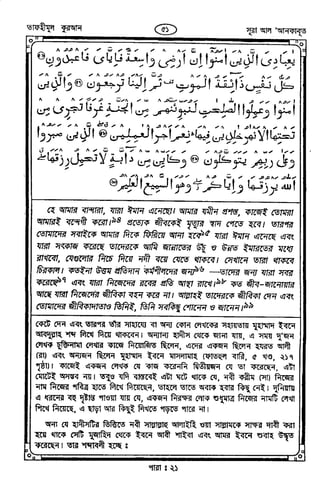 তাফহীমুল কুরআন
৫১
সূরা আল 'আনকাবূত
يٰعِبَادِيَ الَّذِيْنَ اٰمَنُوْٓا اِنَّ اَرْضِيْ وَاسِعَةٌ فَاِيَّايَ فَاعْبُدُوْنِ
كُلُّ نَفْسٍ ذَآئِقَةُ الْمَوْتِ ثُمَّ اِلَيْنَا تُرْجَعُوْنَ وَالَّذِيْنَ
اٰمَنُوْا وَعَمِلُوا الصّٰلِحٰتِ لَنُبَوِّئَنَّهُمْ مِّنَ الْجَنَّةِ غُرَفًا تَجْرِيْ مِنْ
تَحْتِهَا الْاَنْهٰرُ خٰلِدِيْنَ فِيْهَا نِعْمَ اَجْرُ الْعٰمِلِيْنَ الَّذِيْنَ صَبَرُوْا
وَعَلٰى رَبِّهِمْ يَتَوَكَّلُوْنَ وَكَاَيِّنْ مِّنْ دَآبَّةٍ لَّا تَحْمِلُ رِزْقَهَا
اَللّٰهُ يَرْزُقُهَا وَاِيَّاكُمْ وَهُوَ السَّمِيْعُ الْعَلِيْمُ
হে আমার বান্দারা, যারা ঈমান এনেছো! আমার যমীন প্রশস্ত, কাজেই তোমরা
আমারই বন্দেগী করো।৯৪ প্রত্যেক জীবকেই মৃত্যুর স্বাদ পেতে হবে। তারপর
তোমাদের সবাইকে আমার দিকে ফিরিয়ে আনা হবে৯৫ যারা ঈমান এনেছে এবং
যারা সৎকাজ করেছে তাদেরকে আমি জান্নাতের উঁচু ও উন্নত ইমারতের মধ্যে
রাখবো, যেগুলোর নিচে দিয়ে নদী বয়ে যেতে থাকবে। সেখানে তারা থাকবে
চিরকাল। কতইনা উত্তম প্রতিদান কর্মশীলদের জন্য৯৬—তাদের জন্য যারা সবর
করেছে৯৭ এবং যারা নিজেদের রবের প্রতি আস্থা রাখে।৯৮ কত জীব-জানোয়ার
আছে যারা নিজেদের জীবিকা বহন করে না। আল্লাহই তাদেরকে জীবিকা দেন এবং
তোমাদের জীবিকাদাতাও তিনিই, তিনি সবকিছু শোনেন ও জানেন।৯৯
কেটে দেন এবং তারপর তাঁর সাহায্যে বা অন্য কোন লেখকের সহায়তায় মুহাম্মাদ ইবনে
আবদুল্লাহ শব্দ লিখে দিয়ে থাকবেন। অন্যান্য হাদীস থেকে জানা যায়, এ সময় দু'জন
লেখক চুক্তিনামা লেখার কাজে নিয়োজিত ছিলেন, এদের একজন ছিলেন হযরত আলী
(রা) এবং অন্যজন ছিলেন মুহাম্মাদ ইবনে মাসলামাহ (ফাতহুল বারি, ৫ খণ্ড, ২১৭
পৃষ্ঠা)। কাজেই একজন লেখক যে কাজ করেননি দ্বিতীয়জন যে তা করেছেন, এটা
মোটেই অসম্ভব নয়। তবুও যদি বাস্তবেই এটা ঘটে থাকে যে, নবী করীম (সা) নিজের
নাম নিজের পবিত্র হাতে লিখে দিয়েছেন, তাহলে তাতে অবাক হবার কিছু নেই। দুনিয়ায়
এ ধরনের বহু দৃষ্টান্ত পাওয়া যায় যে, একজন নিরক্ষর লোক শুধুমাত্র নিজের নামটি লেখা
শিখে নিয়েছে, এ ছাড়া আর কিছুই লিখতে পড়তে পারে না।
অন্য যে হাদীসটির ভিত্তিতে নবী সাল্লাল্লাহু আলাইহি ওয়া সাল্লামকে সাক্ষর দাবী করা
হয়ে থাকে সেটি মুজাহিদ থেকে ইবনে আবী শাইবা এবং আমর ইবনে শুবাহ উদ্ধৃত
করেছেন। তার শব্দাবলী হচ্ছে :
পারা : ২১